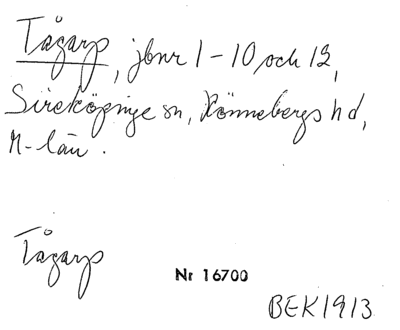 Tågarp, jbnr 1-10 och 12,
Sireköpinge sn, Rönnebergs hd,
M-län.
Tågarp
Nr 16700
BEK 1913